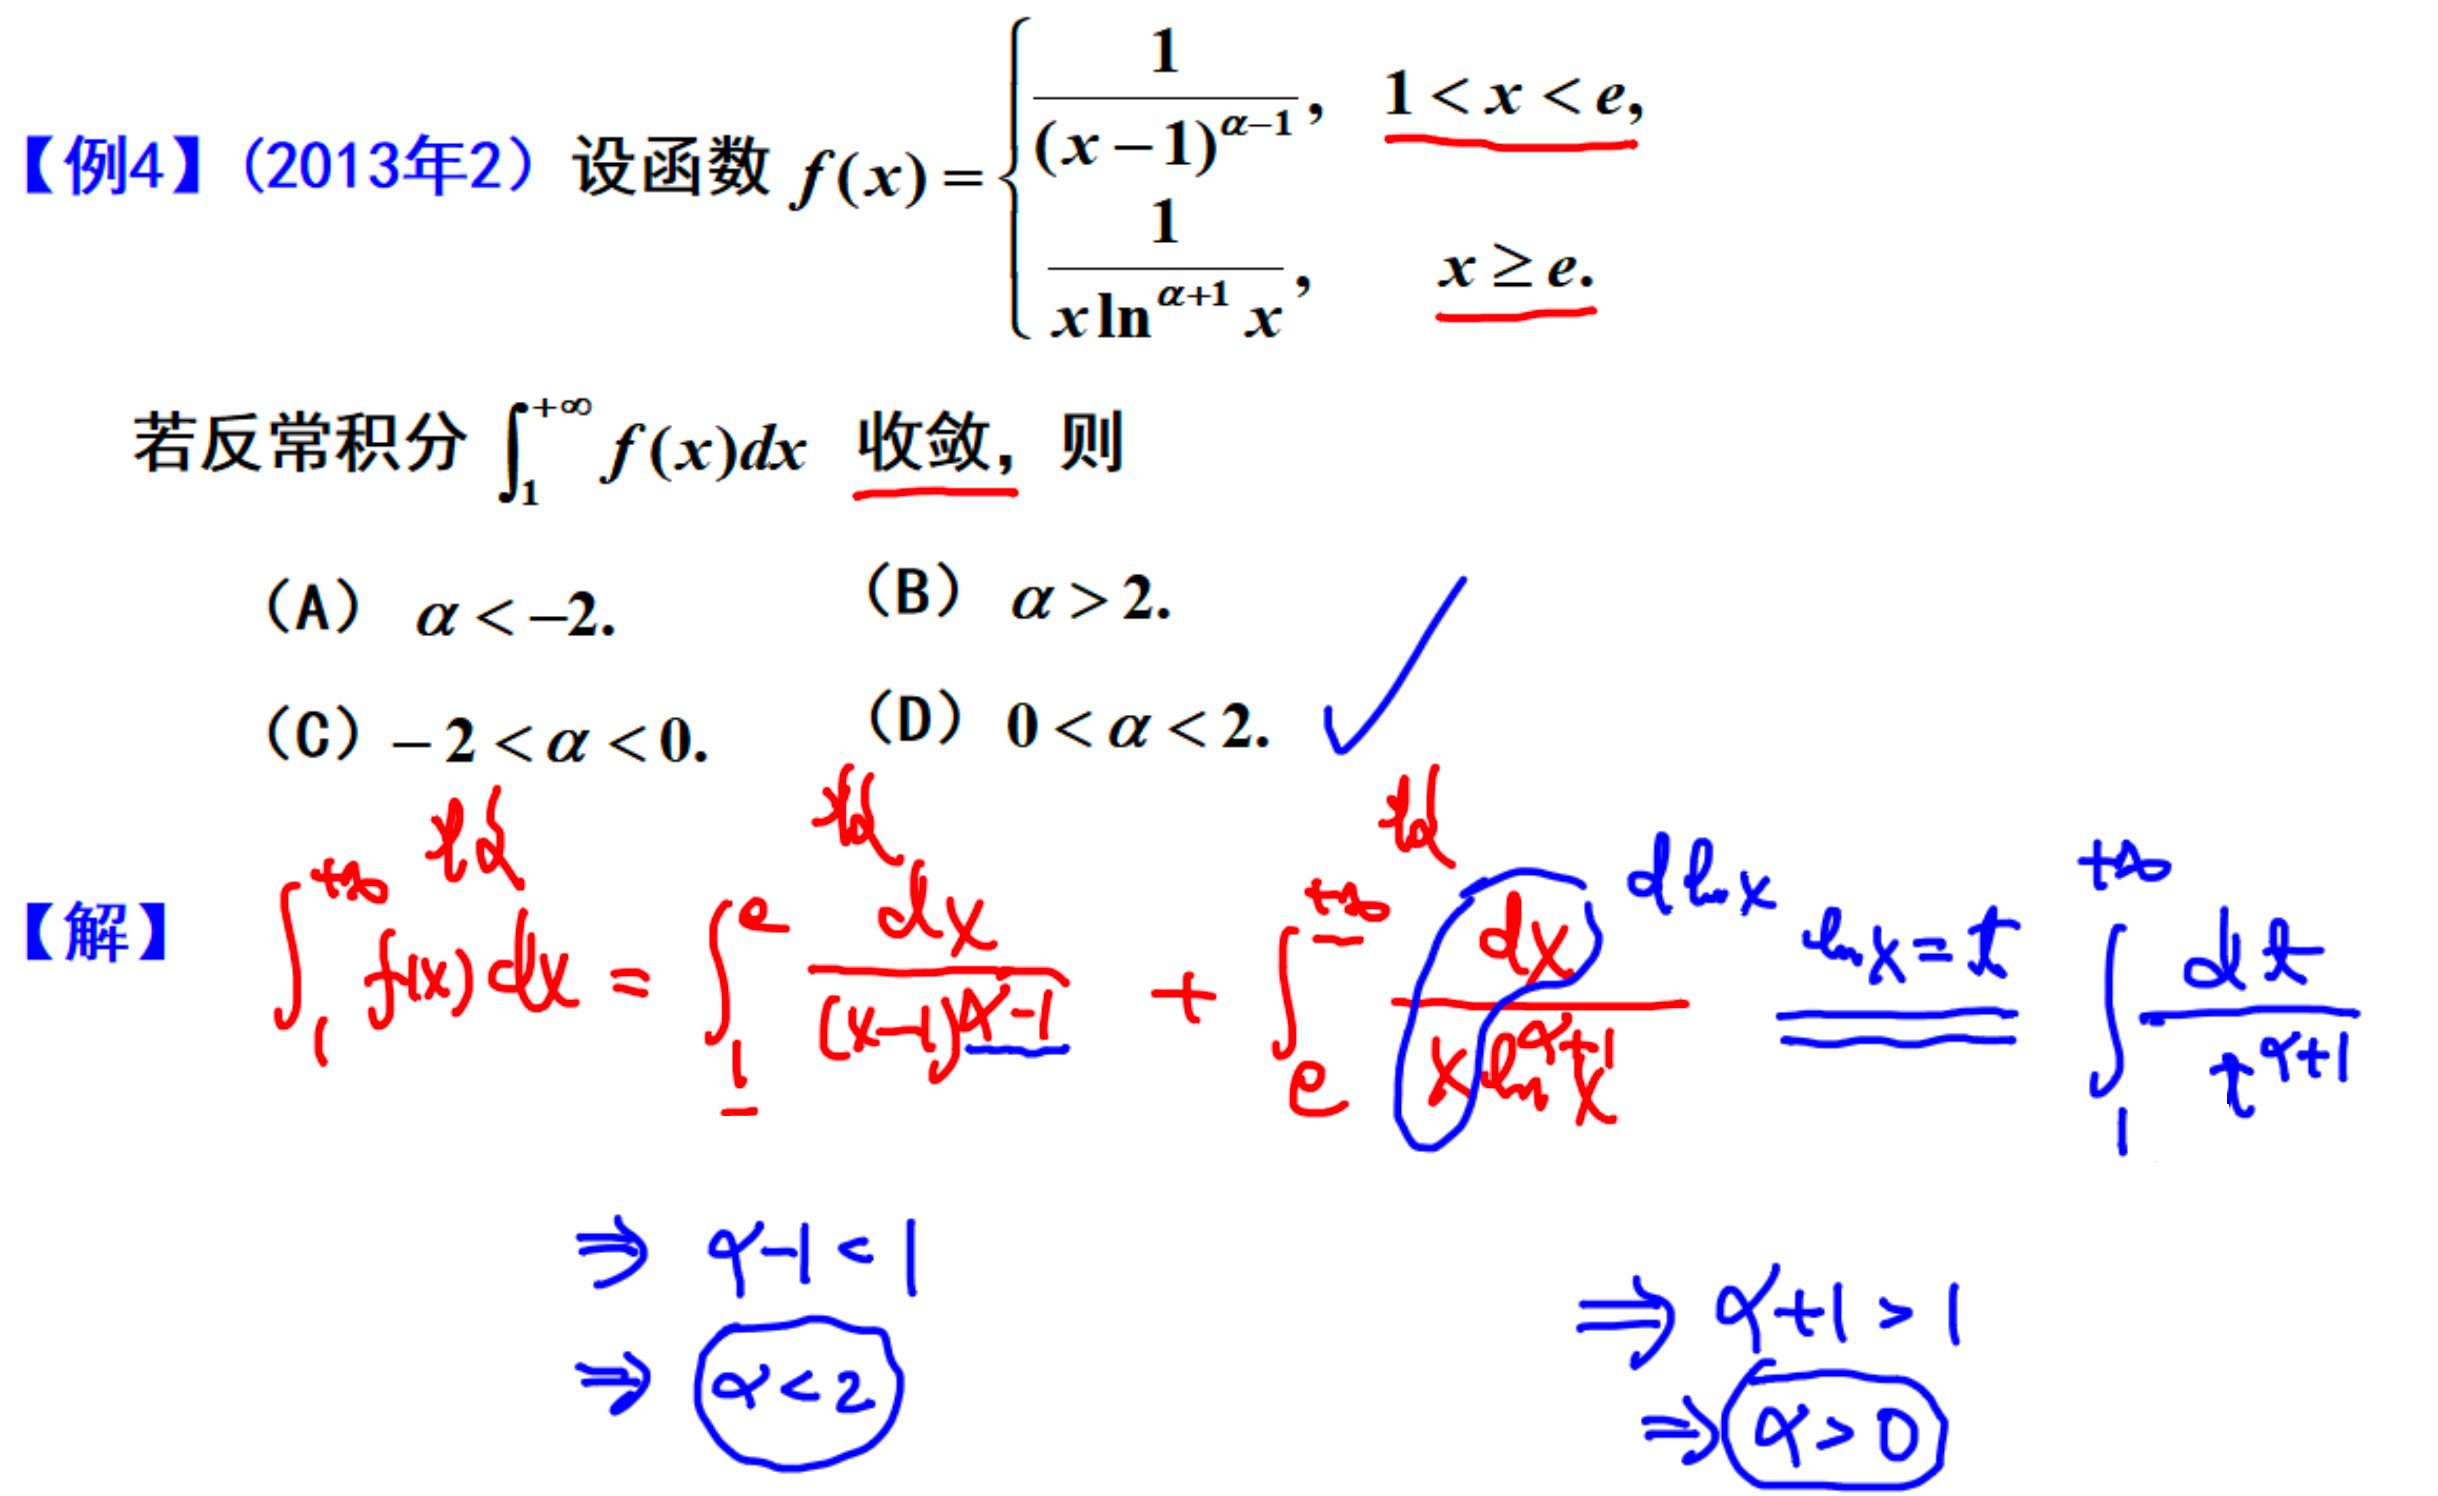 【例4】(2013年2) 设函数 f(x) = { 1/(x−1)^{α−1}, 1 < x < e,
1/(x ln^{α+1} x), x ≥ e.
若反常积分 ∫_1^{+∞} f(x)dx 收敛, 则
(A) α < −2. (B) α > 2.
(C) −2 < α < 0. (D) 0 < α < 2. ✓
收敛 收敛 收敛
【解】 ∫_1^{+∞} f(x) dx = ∫_1^e dx/(x−1)^{α−1} + ∫_e^{+∞} dx/(x ln^{α+1} x) d ln x ln x = t ∫_1^{+∞} dt/t^{α+1}
⇒ α−1 < 1 ⇒ α+1 > 1
⇒ α < 2 ⇒ α > 0